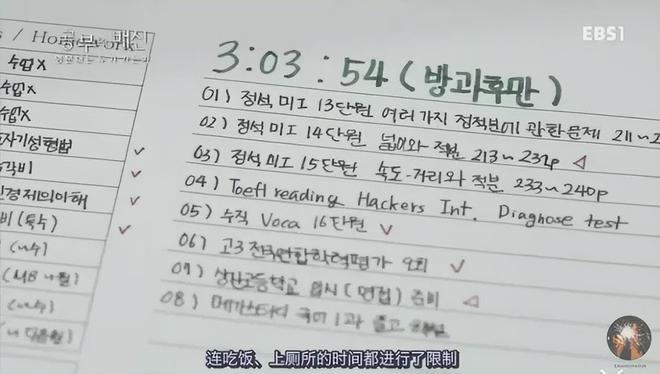 EBS1
공부의 배신
/ Homework
수업X
수업X
수업X
자기성형법
경제의이해
비 (특수)
(MB
3:03:54 (방과후만)
01) 정석 미I 13단원 여러가지 정적분에 관한문제 211~2
02) 정석 미I 14단원 넓이와 적분 213~232p
03) 정석 미I 15단원 속도·거리와 적분 233~240p
04) Toefl reading Hackers Int. Diagnose test
05) 수직 Voca 16단원
06) 고3 전국연합학력평가 9회
07) 상산고등학교 입시 (면접) 준비
08) 메가스터디 국어 1과 풀고
连吃饭、上厕所的时间都进行了限制